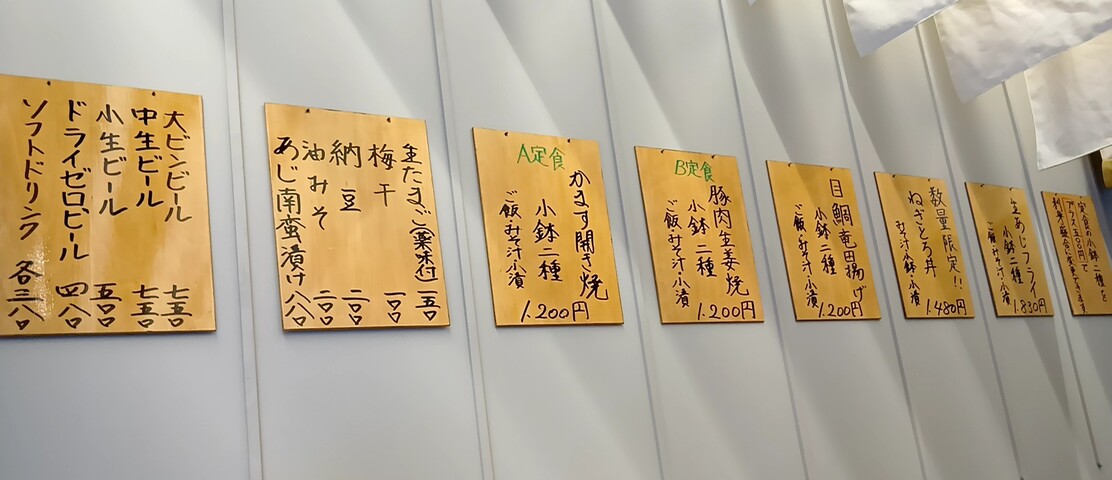 大ビンビール 七五〇
中生ビール 七五〇
小生ビール 五〇〇
ドライゼロビール 四八〇
ソフトドリンク 各三八〇
生たまご(薬味付) 一五〇
梅干 一〇〇
納豆 二〇〇
油みそ 二〇〇
あじ南蛮漬け 八八〇
A定食
かます開き焼
小鉢二種
ご飯みそ汁小漬
1.200円
B定食
豚肉生姜焼
小鉢二種
ご飯みそ汁小漬
1.200円
目鯛竜田揚げ
小鉢二種
ご飯みそ汁小漬
1.200円
数量限定!!
ねぎとろ丼
みそ汁小鉢小漬
1.480円
生あじフライ
小鉢二種
ご飯みそ汁小漬
1.830円
定食の小鉢二種を